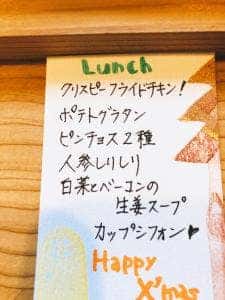 Lunch
クリスピーフライドチキン!
ポテトグラタン
ピンチョス2種
人参しりしり
白菜とベーコンの
生姜スープ
カップシフォン♥
Happy
X'mas